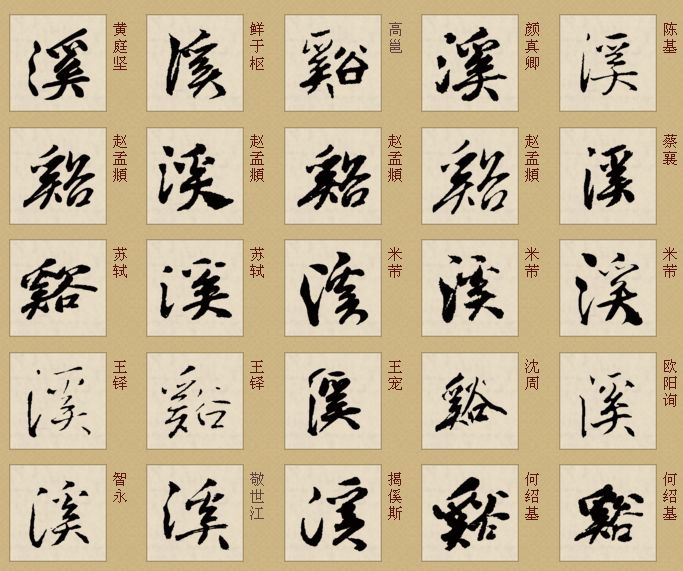 溪 黄庭坚 溪 鲜于枢 谿 高邕 溪 颜真卿 溪 陈基
谿 赵孟頫 溪 赵孟頫 谿 赵孟頫 谿 赵孟頫 溪 蔡襄
谿 苏轼 溪 苏轼 溪 米芾 溪 米芾 溪 米芾
溪 王铎 谿 王铎 溪 王宠 谿 沈周 溪 欧阳询
溪 智永 溪 敬世江 溪 揭傒斯 谿 何绍基 谿 何绍基